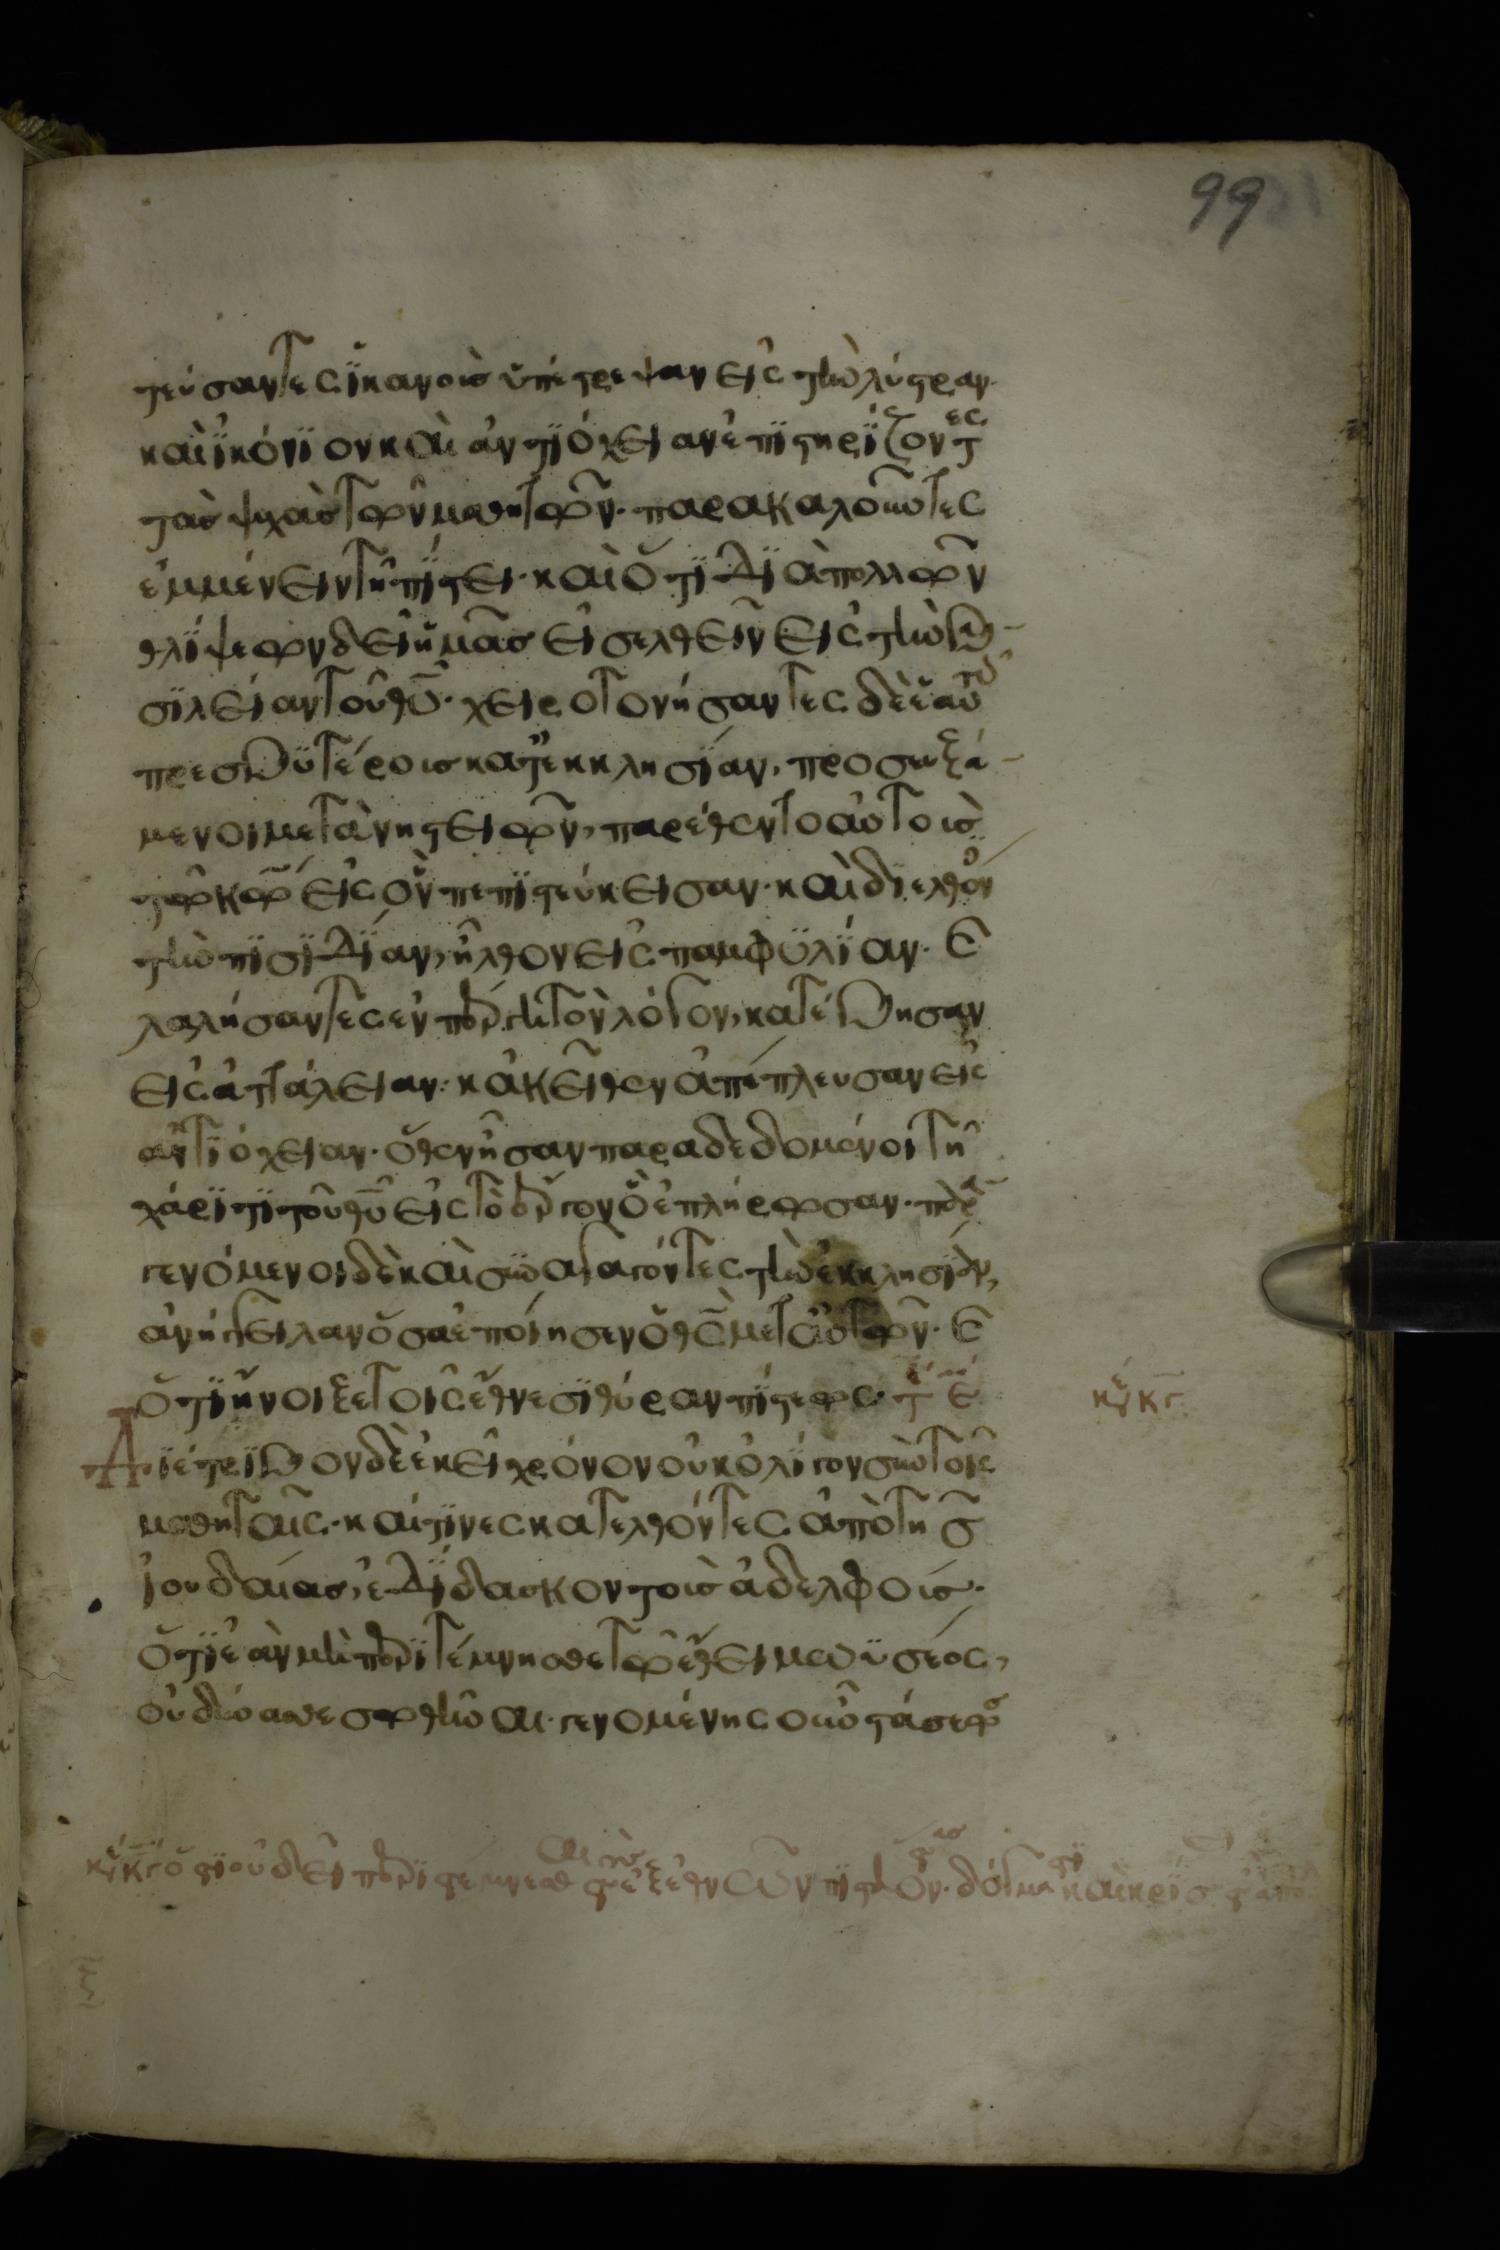 99
τεύσαντες ϊκανοὺς ὑπέστρεψαν εἰς τὴν λύστραν·
καὶ ϊκόνϊον καὶ ἀντϊόχειαν ἐπϊστηρϊζοντες
τὰς ψυχὰς τῶν μαθητῶν· παρακαλοῦντες
ἐμμένειν τῆ πϊστει· καὶ ὅτϊ δϊὰ πολλῶν
θλϊψεων δεῖ ἡμᾶς εἰσελθεῖν εἰς τὴν βα
σϊλείαν τοῦ θῦ· χειροτονήσαντες δὲ αὐτοῖς
πρεσβϋτέρους κατ' ἐκκλησϊαν, προσευξά
μενοι μετὰ νηστειῶν, παρέθεντο αὐτοὺς
τῶ κῶ εἰς ὃν πεπϊστεύκεισαν· καὶ δϊελθόν
τὴν πϊσϊδϊαν, ἦλθον εἰς παμφϋλϊαν· καὶ
λαλήσαντες ἐν πέργη τὸν λόγον, κατέβησαν
εἰς ἀττάλειαν· κἀκεῖθεν ἀπέπλευσαν εἰς
ἀντϊόχειαν· ὅθεν ἦσαν παραδεδομένοι τῆ
χάρϊτϊ τοῦ θῦ εἰς τὸ ἔργον ὃ ἐπλήρωσαν· παρα
γενόμενοι δὲ καὶ συναγαγόντες τὴν ἐκκλησϊαν,
ἀνήγγειλαν ὅσα ἐποίησεν ὁ θς μετ' αὐτῶν· καὶ
ὅτϊ ἤνοιξε τοῖς ἔθνεσϊ θύραν πϊστεως·
Δϊέτρϊβον δὲ ἐκεῖ χρόνον οὐκ ὀλϊγον σὺν τοῖς
μαθηταῖς· καί τϊνες κατελθόντες ἀπὸ τῆς
ἰουδαίας, ἐδϊδασκον τοὺς ἀδελφούς·
ὅτϊ ἐὰν μὴ περϊτέμνησθε τῶ ἔθει μωϋσέος,
οὐ δύνασθε σωθῆναι· γενομένης οὖν στάσεως
κε κγ
κε κγ ὅτϊ οὐ δεῖ περϊτέμνεσθαι τοὺς ἐξ ἐθνῶν πϊστεύοντας· δόγμα καὶ κρϊσ